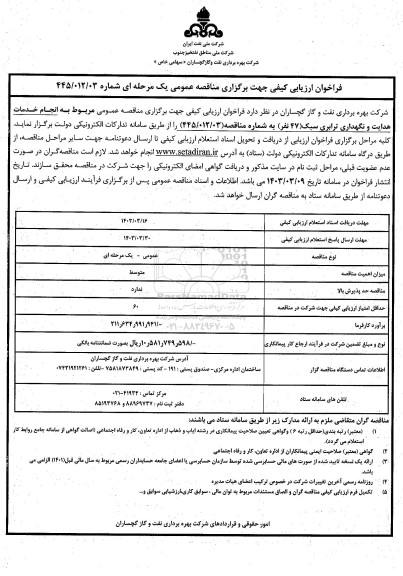 شرکت ملی نفت ایران
شرکت ملی مناطق نفتخیز جنوب
شرکت بهره برداری نفت و گاز گچساران « سهامی خاص »
فراخوان ارزیابی کیفی جهت برگزاری مناقصه عمومی یک مرحله ای شماره ۴۴۵/۰۱۲/۰۳
شرکت بهره برداری نفت و گاز گچساران در نظر دارد فراخوان ارزیابی کیفی جهت برگزاری مناقصه عمومی مربوط به انجام خدمات
هدایت و نگهداری ترابری سبک(۴۷ نفر) به شماره مناقصه(۴۴۵/۰۱۲/۰۳) را از طریق سامانه تدارکات الکترونیکی دولت برگزار نماید.
کلیه مراحل برگزاری فراخوان ارزیابی از دریافت و تحویل اسناد استعلام ارزیابی کیفی تا ارسال دعوتنامه جهت سایر مراحل مناقصه، از
طریق درگاه سامانه تدارکات الکترونیکی دولت (ستاد) به آدرس www.setadiran.ir انجام خواهد شد. لازم است مناقصه‌گران در صورت
عدم عضویت قبلی، مراحل ثبت نام در سایت مذکور و دریافت گواهی امضای الکترونیکی را جهت شرکت در مناقصه محقق سازند. تاریخ
انتشار فراخوان در سامانه تاریخ ۱۴۰۳/۰۳/۰۹ می باشد. اطلاعات و اسناد مناقصه عمومی پس از برگزاری فرآیند ارزیابی کیفی و ارسال
دعوتنامه از طریق سامانه ستاد به مناقصه گران ارسال خواهد شد.
مهلت دریافت اسناد استعلام ارزیابی کیفی ۱۴۰۳/۰۳/۱۶
مهلت ارسال پاسخ استعلام ارزیابی کیفی ۱۴۰۳/۰۳/۳۰
نوع مناقصه عمومی - یک مرحله ای
میزان اهمیت مناقصه متوسط
مناقصه حد پذیرش بالا ندارد
حداقل امتیاز ارزیابی کیفی جهت شرکت در مناقصه ۶۰
برآورد کارفرما
نوع و مبلغ تضمین شرکت در فرآیند ارجاع کار پیمانکاری ریال بصورت ضمانتنامه بانکی
اطلاعات تماس دستگاه مناقصه گزار آدرس شرکت بهره برداری نفت و گاز گچساران
ساختمان اداره مرکزی- صندوق پستی : ۱۹۱ - کد پستی : ۷۵۸۱۸۷۳۸۴۹ -تلفن : ۰۷۴۳۱۹۲۱۲۶۱
تلفن های سامانه ستاد مرکز تماس : ۴۱۹۳۴-۰۲۱
دفتر ثبت نام : ۸۸۹۶۹۷۳۷ و ۸۵۱۹۳۷۶۸
مناقصه گران متقاضی ملزم به ارائه مدارک زیر از طریق سامانه ستاد می باشند:
۱) (معتبر) رتبه بندی(حداقل رتبه ۶) وگواهی تعیین صلاحیت پیمانکاری در رشته ایاب و ذهاب از اداره تعاون، کار و رفاه اجتماعی (اصالت گواهی از سامانه جامع روابط کار
استعلام می گردد).
۲) گواهی (معتبر) صلاحیت ایمنی پیمانکاران از اداره تعاون، کار و رفاه اجتماعی
۳) ارائه یک نسخه تایید شده از صورت های مالی حسابرسی شده توسط سازمان حسابرسی یا اعضای جامعه حسابداران رسمی مربوط به سال مالی قبل(۱۴۰۱) الزامی می
باشد.
۴) روزنامه رسمی آخرین تغییرات شرکت در خصوص ترکیب اعضای هیات مدیره
۵) تکمیل فرم ارزیابی کیفی مناقصه گران و الصاق مستندات مربوط به توان مالی ، سوابق کاری،ارزشیابی سوابق و...
امور حقوقی و قراردادهای شرکت بهره برداری نفت و گاز گچساران